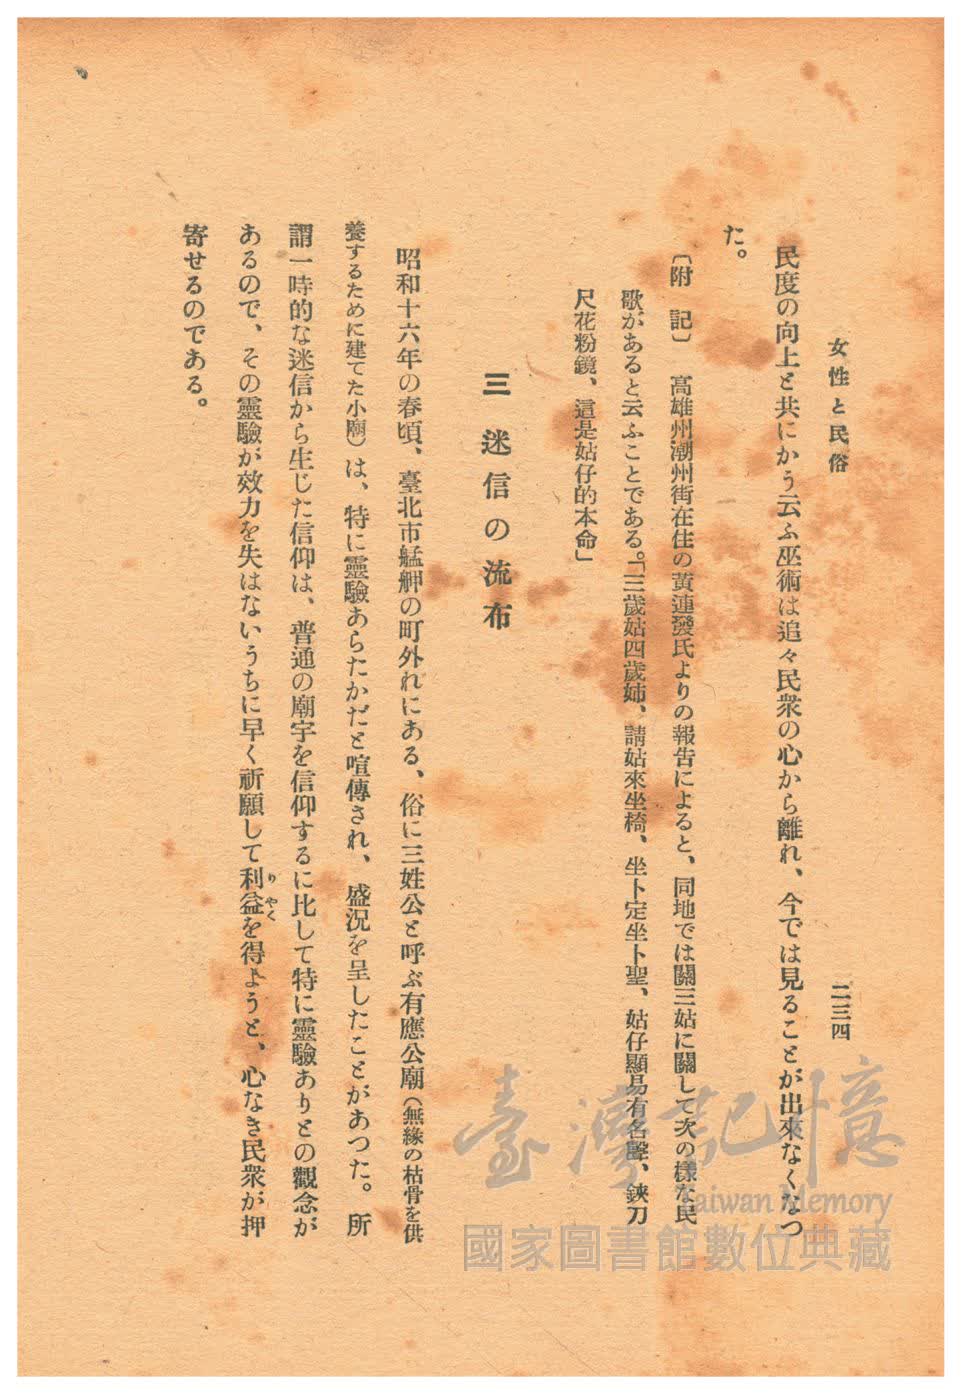 女性と民俗
二三四
民度の向上と共にかう云ふ巫術は追々民衆の心から離れ、今では見ることが出來なくなつ
た。
〔附　記〕　高雄州潮州街在住の黃連發氏よりの報告によると、同地では關三姑に關して次の樣な民
歌があると云ふことである。「三歲姑四歲姉、請姑來坐椅、坐卜定坐卜聖、姑仔顯易有名聲、鋏刀
尺花粉鏡、這是姑仔的本命」
三　迷信の流布
昭和十六年の春頃、臺北市艋舺の町外れにある、俗に三姓公と呼ぶ有應公廟（無緣の枯骨を供
養するために建てた小廟）は、特に靈驗あらたかだと喧傳され、盛況を呈したことがあつた。所
謂一時的な迷信から生じた信仰は、普通の廟宇を信仰するに比して特に靈驗ありとの觀念が
あるので、その靈驗が效力を失はないうちに早く祈願して利益を得ようと、心なき民衆が押
りやく
寄せるのである。
臺灣記憶
Taiwan Memory
國家圖書館數位典藏